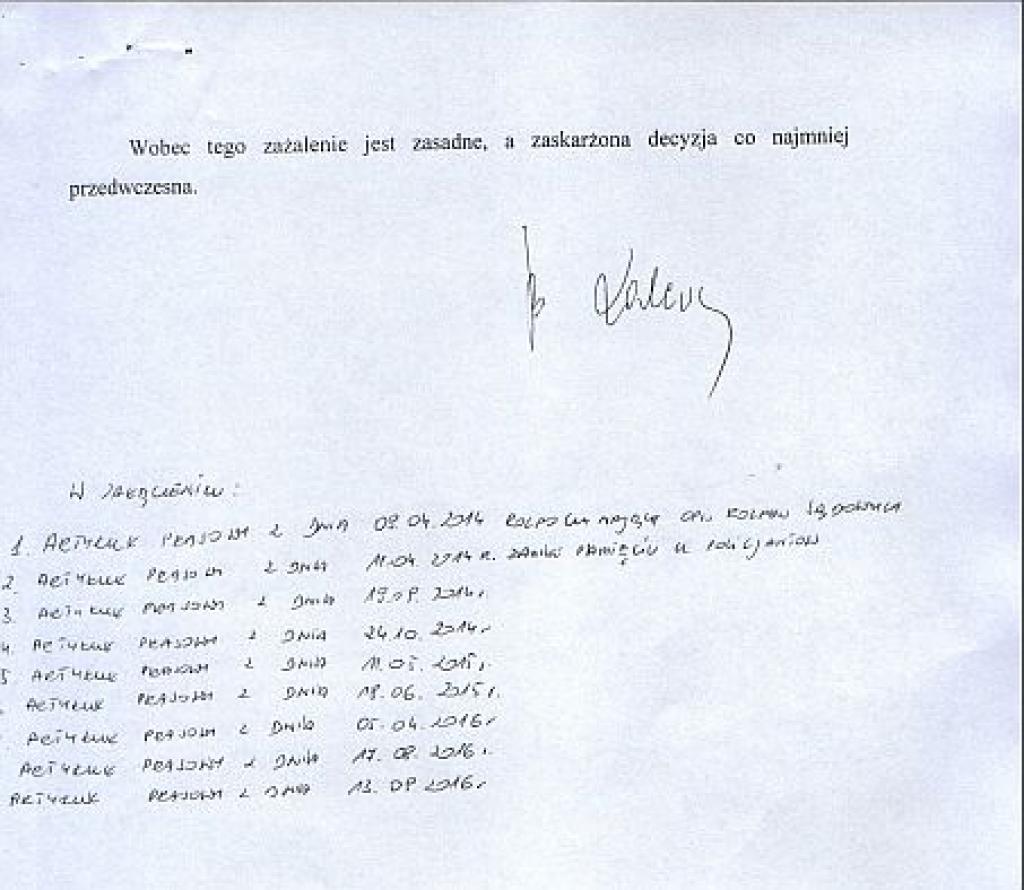 Wobec tego zażalenie jest zasadne, a zaskarżona decyzja co najmniej
przedwczesna.
W ZAŁĄCZENIU:
1. ARTYKUŁ PRASOWY Z DNIA 08.04.2014
2. ARTYKUŁ PRASOWY Z DNIA 11.04.2014 R. ZANIKI PAMIĘCI U POLICJANTÓW
3. ARTYKUŁ PRASOWY Z DNIA 2014r.
4. ARTYKUŁ PRASOWY Z DNIA 24.10.2014r
5 ARTYKUŁ PRASOWY Z DNIA 2015r.
ARTYKUŁ PRASOWY Z DNIA 18.06.2015r.
ARTYKUŁ PRASOWY Z DNIA 05.04.2016r
ARTYKUŁ PRASOWY Z DNIA 17.08.2016r.
ARTYKUŁ PRASOWY Z DNIA 2016r